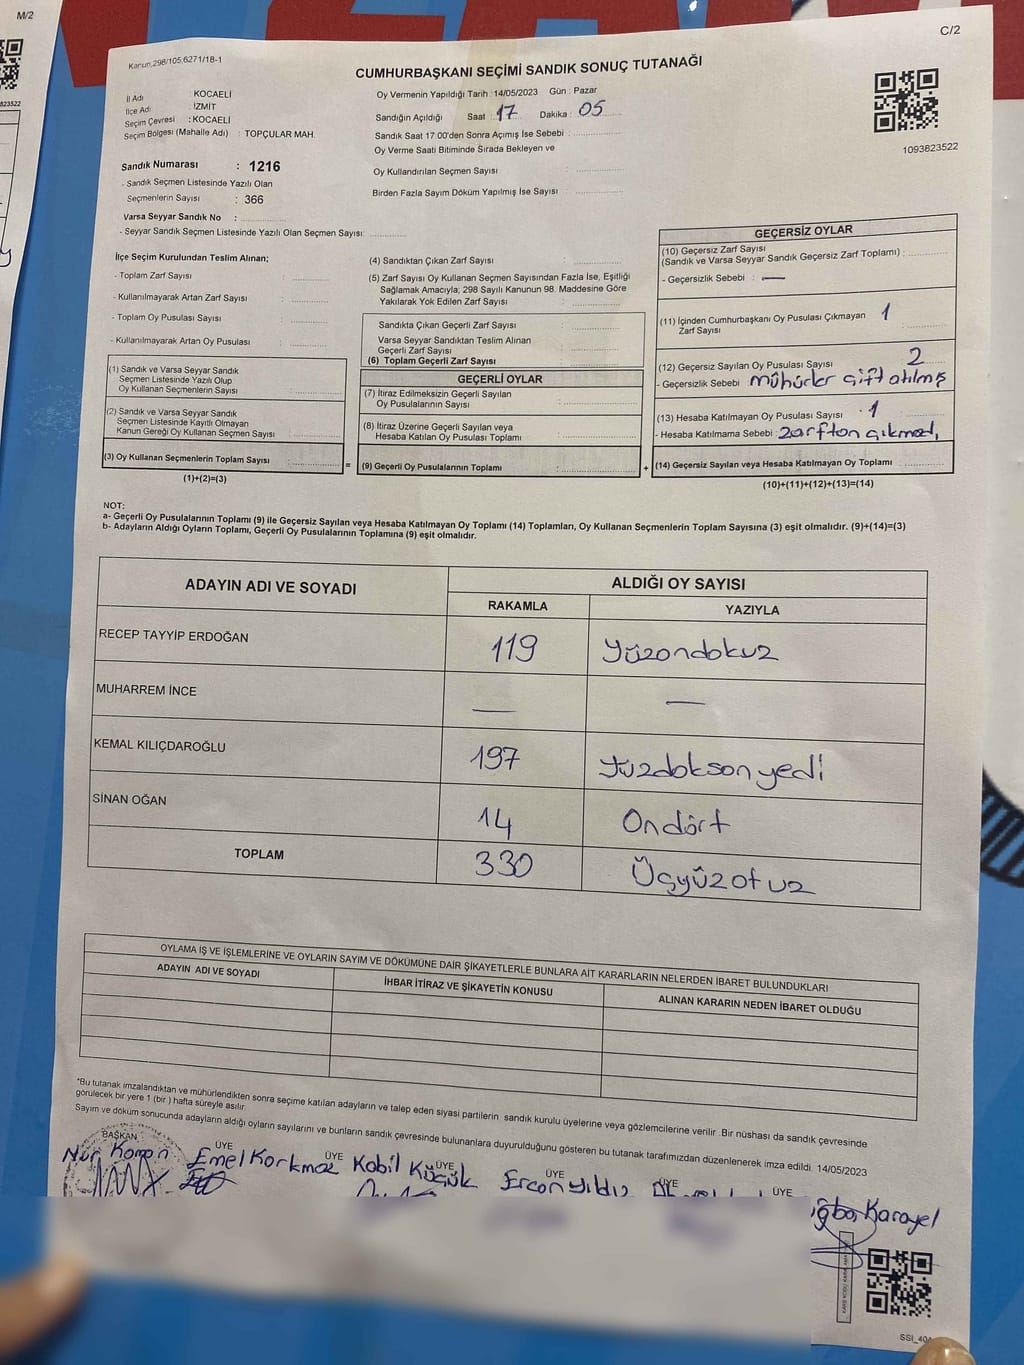 M/2
C/2
823522
Kanun.298/105.6271/18-1
CUMHURBAŞKANI SEÇİMİ SANDIK SONUÇ TUTANAĞI
1093823522
İl Adı : KOCAELİ
İlçe Adı : İZMİT
Seçim Çevresi : KOCAELİ
Seçim Bölgesi (Mahalle Adı) : TOPÇULAR MAH.
Sandık Numarası : 1216
- Sandık Seçmen Listesinde Yazılı Olan
Seçmenlerin Sayısı : 366
Varsa Seyyar Sandık No :
- Seyyar Sandık Seçmen Listesinde Yazılı Olan Seçmen Sayısı:
Oy Vermenin Yapıldığı Tarih : 14/05/2023 Gün : Pazar
Sandığın Açıldığı Saat : 17 Dakika : 05
Sandık Saat 17:00'den Sonra Açımış İse Sebebi :
Oy Verme Saati Bitiminde Sırada Bekleyen ve
Oy Kullandırılan Seçmen Sayısı :
Birden Fazla Sayım Döküm Yapılmış İse Sayısı :
İlçe Seçim Kurulundan Teslim Alınan;
- Toplam Zarf Sayısı :
- Kullanılmayarak Artan Zarf Sayısı :
- Toplam Oy Pusulası Sayısı :
- Kullanılmayarak Artan Oy Pusulası :
(1) Sandık ve Varsa Seyyar Sandık
Seçmen Listesinde Yazılı Olup
Oy Kullanan Seçmenlerin Sayısı :
(2) Sandık ve Varsa Seyyar Sandık
Seçmen Listesinde Kayıtlı Olmayan
Kanun Gereği Oy Kullanan Seçmen Sayısı :
(3) Oy Kullanan Seçmenlerin Toplam Sayısı :
(1)+(2)=(3)
=
(4) Sandıktan Çıkan Zarf Sayısı :
(5) Zarf Sayısı Oy Kullanan Seçmen Sayısından Fazla İse, Eşitliği
Sağlamak Amacıyla; 298 Sayılı Kanunun 98. Maddesine Göre
Yakılarak Yok Edilen Zarf Sayısı :
Sandıkta Çıkan Geçerli Zarf Sayısı :
Varsa Seyyar Sandıktan Teslim Alınan
Geçerli Zarf Sayısı :
(6) Toplam Geçerli Zarf Sayısı :
GEÇERLİ OYLAR
(7) İtiraz Edilmeksizin Geçerli Sayılan
Oy Pusulalarının Sayısı :
(8) İtiraz Üzerine Geçerli Sayılan veya
Hesaba Katılan Oy Pusulası Toplamı :
(9) Geçerli Oy Pusulalarının Toplamı :
+
GEÇERSİZ OYLAR
(10) Geçersiz Zarf Sayısı
(Sandık ve Varsa Seyyar Sandık Geçersiz Zarf Toplamı) :
- Geçersizlik Sebebi : —
(11) İçinden Cumhurbaşkanı Oy Pusulası Çıkmayan 1
Zarf Sayısı :
(12) Geçersiz Sayılan Oy Pusulası Sayısı : 2
- Geçersizlik Sebebi : Mühürler çift atılmış
(13) Hesaba Katılmayan Oy Pusulası Sayısı : 1
- Hesaba Katılmama Sebebi : zarftan çıkmadı,
(14) Geçersiz Sayılan veya Hesaba Katılmayan Oy Toplamı :
(10)+(11)+(12)+(13)=(14)
NOT:
a- Geçerli Oy Pusulalarının Toplamı (9) ile Geçersiz Sayılan veya Hesaba Katılmayan Oy Toplamı (14) Toplamları, Oy Kullanan Seçmenlerin Toplam Sayısına (3) eşit olmalıdır. (9)+(14)=(3)
b- Adayların Aldığı Oyların Toplamı, Geçerli Oy Pusulalarının Toplamına (9) eşit olmalıdır.
ADAYIN ADI VE SOYADI ALDIĞI OY SAYISI
RAKAMLA YAZIYLA
RECEP TAYYİP ERDOĞAN 119 Yüzondokuz
MUHARREM İNCE — —
KEMAL KILIÇDAROĞLU 197 Yüzdoksanyedi
SİNAN OĞAN 14 Ondört
TOPLAM 330 Üçyüzotuz
OYLAMA İŞ VE İŞLEMLERİNE VE OYLARIN SAYIM VE DÖKÜMÜNE DAİR ŞİKAYETLERLE BUNLARA AİT KARARLARIN NELERDEN İBARET BULUNDUKLARI
ADAYIN ADI VE SOYADI İHBAR İTİRAZ VE ŞİKAYETİN KONUSU ALINAN KARARIN NEDEN İBARET OLDUĞU
*Bu tutanak imzalandıktan ve mühürlendikten sonra seçime katılan adayların ve talep eden siyasi partilerin sandık kurulu üyelerine veya gözlemcilerine verilir .Bir nüshası da sandık çevresinde
görülecek bir yere 1 (bir ) hafta süreyle asılır.
Sayım ve döküm sonucunda adayların aldığı oyların sayılarını ve bunların sandık çevresinde bulunanlara duyurulduğunu gösteren bu tutanak tarafımızdan düzenlenerek imza edildi. 14/05/2023
BAŞKAN ÜYE ÜYE ÜYE ÜYE ÜYE ÜYE
Emel Korkmaz Kabil Küçük Ercan Yıldız Karayel
SSI_40